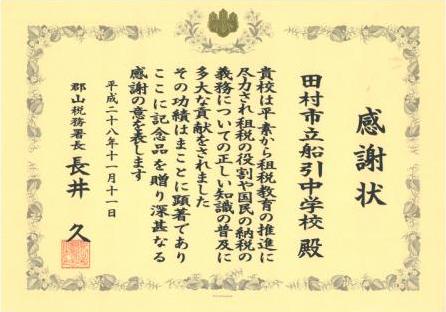 感謝状
田村市立船引中学校 殿
貴校は平素から租税教育の推進に
尽力され租税の役割や国民の納税の
義務についての正しい知識の普及に
多大な貢献をされました
その功績はまことに顕著であり
ここに記念品を贈り深甚なる
感謝の意を表します
平成二十八年十一月十一日
郡山税務署長 長井 久